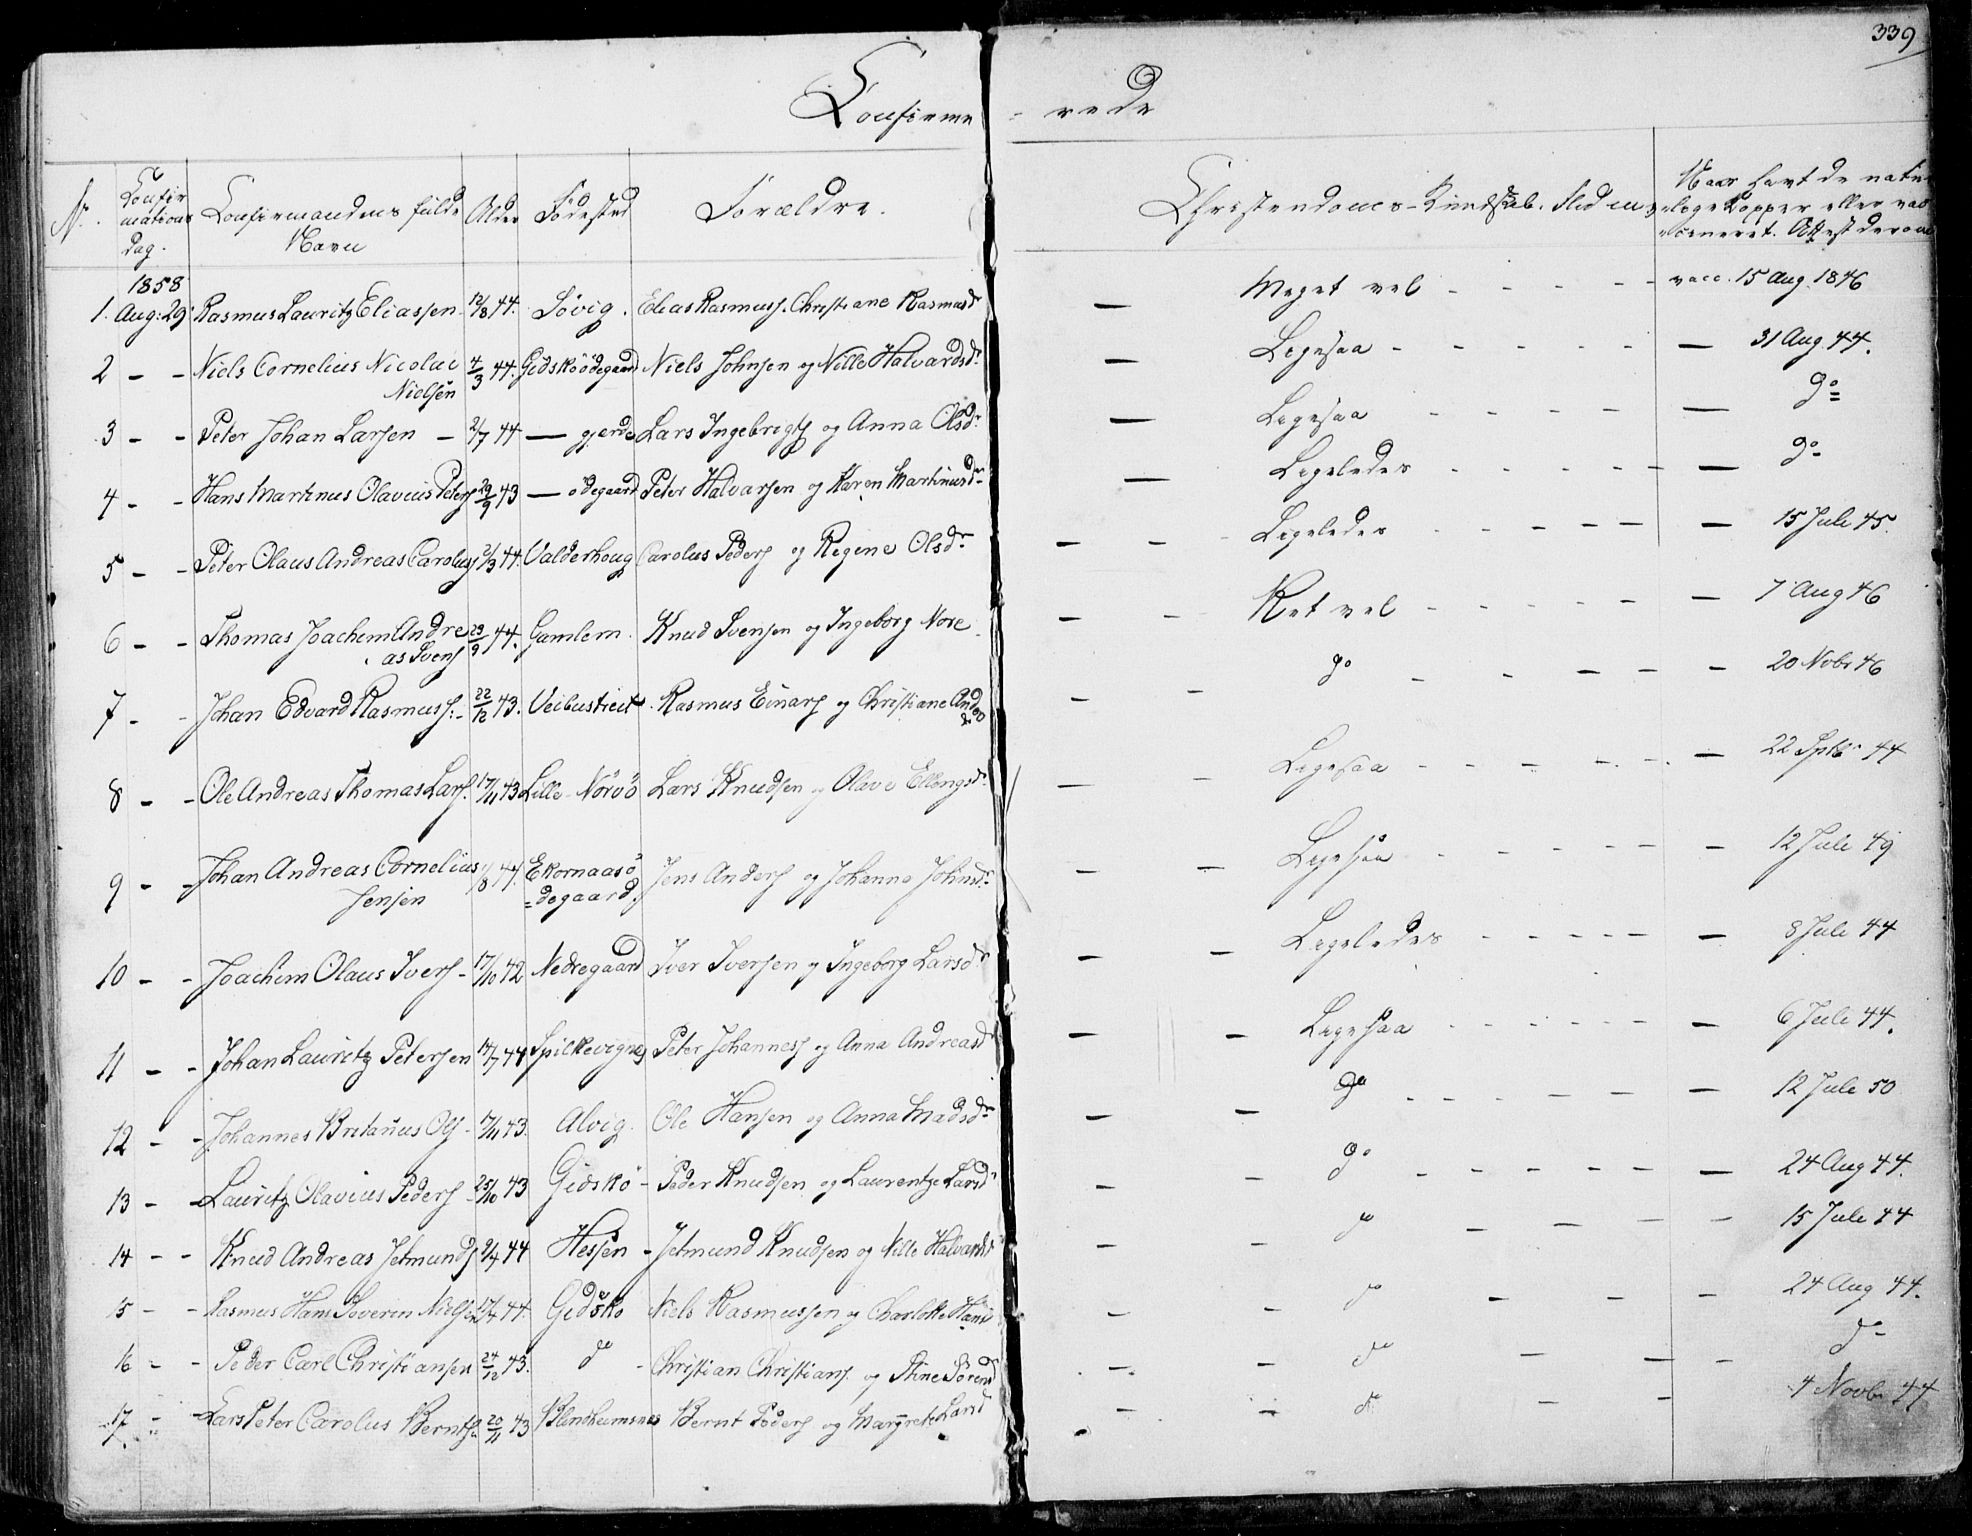 339
Confirme - rede
Nr. Confirmations Dag. Confirmandens fulde Navn Alder Födested Forældre. Christendoms-Kundskab. Flid m Naar havt de natur-lige Kopper eller vac-cineret. Attest derom
1858
1. Aug. 29 Rasmus Lauritz Eliassen 12/8 44. Sövig. Elias Rasmuss. Christiane Rasmusd — Meget vel - - - - - vacc. 15 Aug. 1846
2 - - Niels Cornelius Nicolai 4/3 44. Gidsköödegaard Niels Johnsen og Nille Halvardsdr — Ligesaa - - - - - — 31 Aug 44.
Nielsen
3 - - Peter Johan Larsen - 2/7 44 — gjerde Lars Ingebrigts og Anna Olsdr — Ligesaa - - - - - — do
4 - - Hans Martinus Olavius Peters 29/9 43 — ödegaard Peter Halvarsen og Karen Martinusdr — Ligeledes - - - - - — do
5 - - Peter Olaus Andreas Carolus 2/3 44. Valderhoug Carolus Peders og Regine Olsdr. — - Ligeledes - - - - - — 15 Juli 45.
6 - - Thomas Joachim Andre 29/9 44. Gamlem. Knud Svensen og Ingeborg Nore — - Ret vel - - - - - — 7 Aug 46
as Svens
7 - - Johan Edvard Rasmuss. - 22/12 43. Veibustreit. Rasmus Einars og Christiane Andr — - do - - - - - 20 Nobr 46
8 - - Ole Andreas Thomas Lars. 17/11 43 Lille-Nörvö Lars Knudsen og Olave Ellingsdr — - Ligesaa - - - - - — 22 Sptbr 44
9 - - Johan Andreas Cornelius /8 44. Ekornaasö Jens Anders og Johanne Johnsdr. — - Ligesaa - - - - - - 12 Juli 49
Jensen =degaard.
10 - - Joachim Olaus Ivers - 17/10 42 Nedregaard Iver Iversen og Ingeborg Larsdr — - Ligeledes - - - - - — 8 Juli 44
11 - - Johan Lauritz Petersen 14/7 44 Spilkevignes Peter Johanness og Anna Andreasdr — - Ligesaa - - - - - — 6 Juli 44.
12 - - Johannes Britanus Ols - 17/11 43. Alvig. Ole Hansen og Anna Madsdr — - do - - - - - — 12 Juli 50
13 - - Lauritz Olavius Peders - 25/10 43 Gidskö - Peder Knudsen og Laurentze Larsd — - do - - - - - — 24 Aug 44.
14 - - Knud Andreas Jetmunds 9/4 44 Hessen - Jetmund Knudsen og Nille Halvardsd — - do - - - - 15 Juli 44
15 - - Rasmus Hans Severin Nielsen 17/7 44. Gidskö Niels Rasmussen og Charlotte Hansd — - do - - - 24 Aug 44.
16 - - Peder Carl Christiansen 24/12 43. do - Christian Christians. og Stine Sörensd — - do - - - do
17 - - Lars Peter Carolus Bernts. 20/11 43 Blindheimsnes Bernt Peders og Margrete Larsd — - do - - 4 Novbr 44